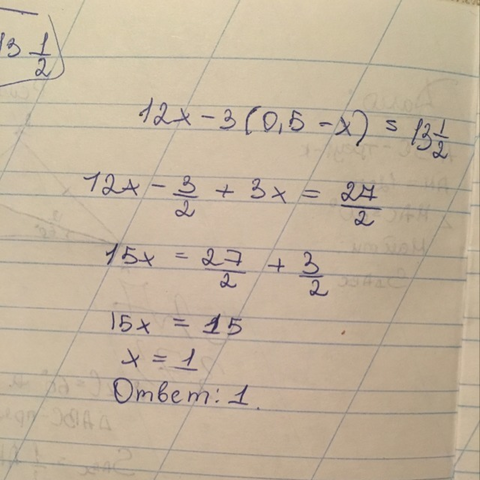 13 1/2
12x - 3(0,5 - x) = 13 1/2
12x - 3/2 + 3x = 27/2
15x = 27/2 + 3/2
15x = 15
x = 1
Ответ: 1.